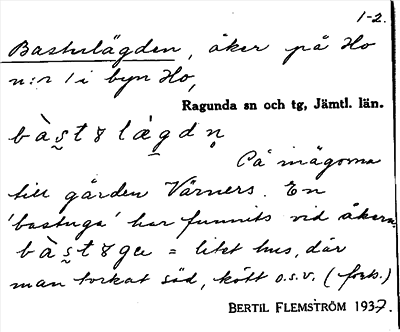 1-2.
Bastulägden, åker på Ho
n:r 1 i byn Ho,
Ragunda sn och tg, Jämtl. län.
bàs̬tȣlàgdn̥
På inägorna
till gården Värners. En
'bastuga' har funnits vid åkern.
bàs̬tȣga = litet hus, där
man torkat säd, kött o.s.v. (forts.)
BERTIL FLEMSTRÖM 1937.